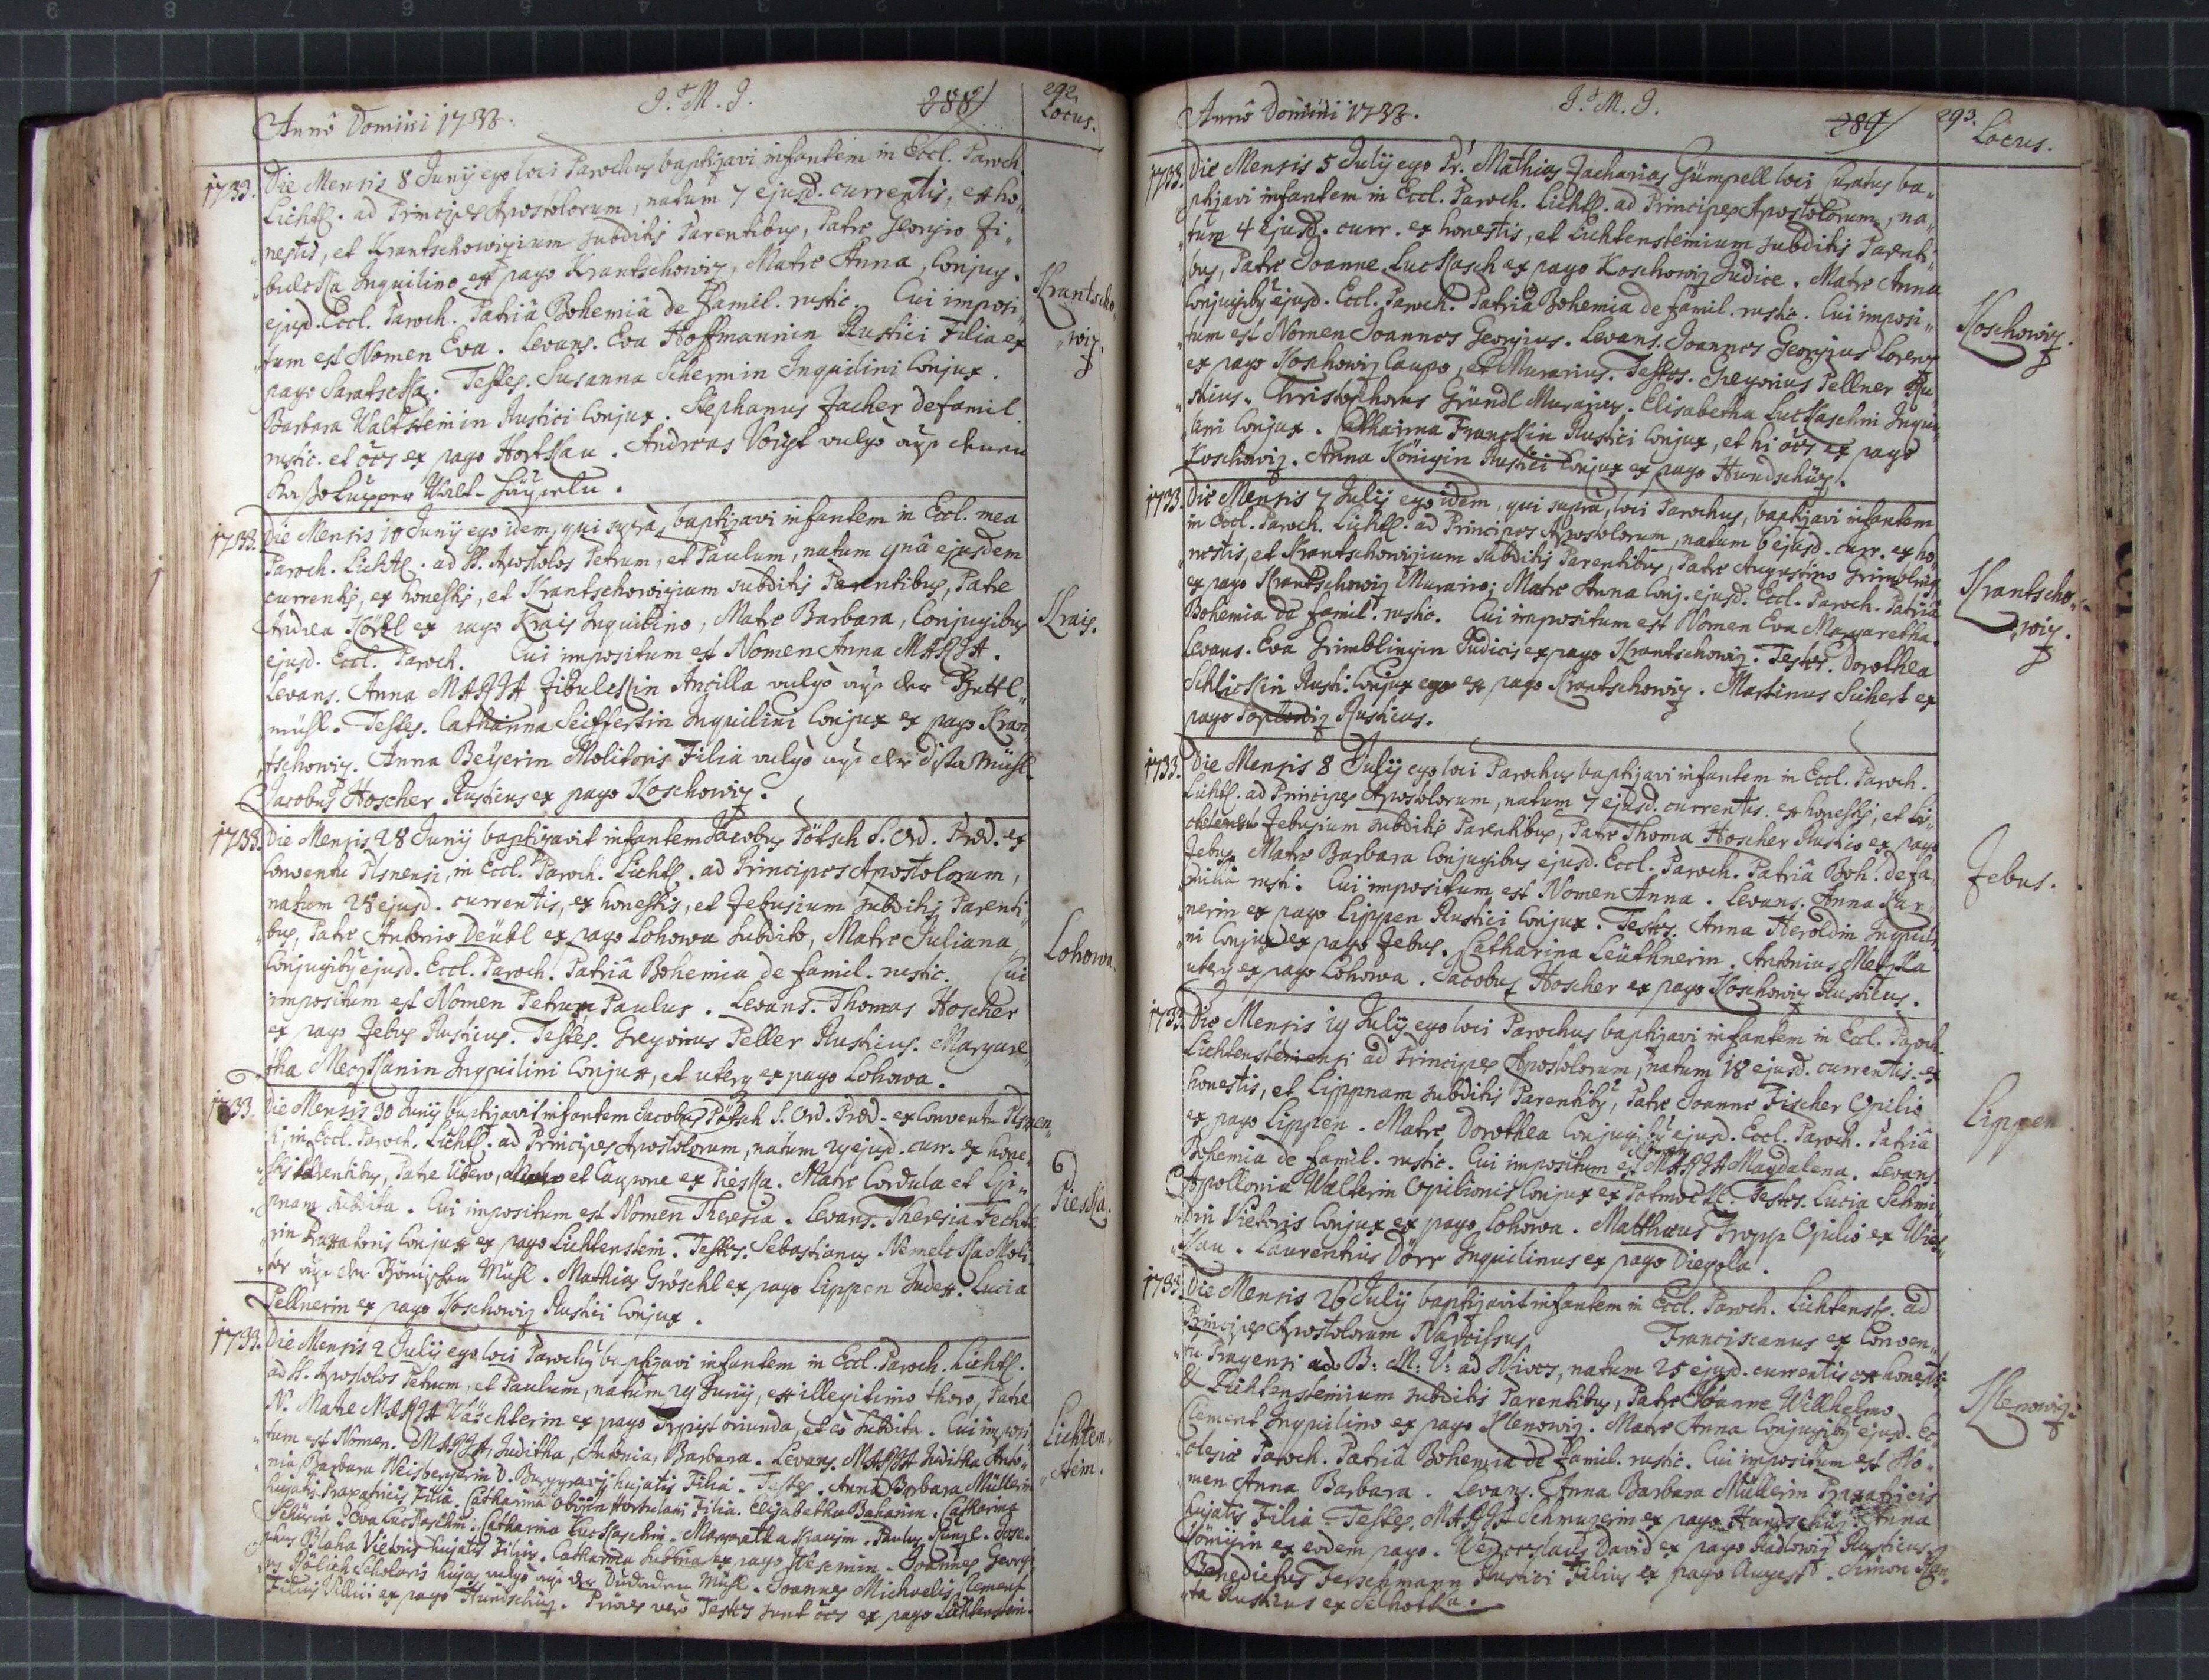 Annô Domini 1733.
J. M. J.
288
292
Locus.
1733. Die Mensis 8 Junÿ ego loci Parochus baptizavi infantem in Eccl. Paroch.
Lichts. ad Principes Apostolorum, natum 7 ejusd. currentis, ex ho„
„nestis, et Krantschowizium subditis Parentibus, Patre Georgio Zi„
„bulcka Inquilino ex pago Krantschowiz, Matre Anna, Conjug.
ejusd. Eccl. Paroch. Patriâ Bohemiâ de Famil. rustic. Cui imposi„
„tum est Nomen Eva. Levans. Eva Hoffmannin Rustici Filia ex
pago Testes. Susanna Schermin Inquilini Conjux.
Barbara Waltstemin Rustici Conjux. Stephanus Zacher de famil.
rustic. et ex pago Andreas Voigt vulgò
Krantscho„
„wiz.
1733. Die Mensis 10 Junÿ ego idem, qui suprà, baptizavi infantem in Eccl. mea
Paroch. Lichts. ad SS. Apostolos Petrum, et Paulum, natum ejusdem
currentis, ex honestis, et Krantschowizium subditis Parentibus, Patre
Andrea Körbl ex pago Krais Inquilino, Matre Barbara, Conjugibus
ejusd. Eccl. Paroch. Cui impositum est Nomen Anna MARIA.
Levans. Anna MARIA Zibulckin Ancilla vulgò der
„mühl. Testes. Catharina Seiffertin Inquilini Conjux ex pago Kran„
„tschowiz. Anna Beÿerin Molitoris Filia vulgò Mühl.
Jacobus Hoscher Rusticus ex pago Koschowiz.
Krais.
1733. Die Mensis 28 Junÿ baptizavit infantem Jacobus Pötsch S. Ord. Præd. ex
Conventu Plsnensi, in Eccl. Paroch. Lichts. ad Principes Apostolorum,
natum 28 ejusd. currentis, ex honestis, et Jebusium subditis Parenti„
„bus, Patre Antonio Deübl ex pago Lohowa subdito, Matre Juliana
Conjugibus ejusd. Eccl. Paroch. Patriâ Bohemia de famil. rustic. Cui
impositum est Nomen Petrus, Paulus. Levans. Thomas Hoscher
ex pago Jebus Rusticus. Testes. Gregorius Peller Rusticus. Margare„
„tha Inquilini Conjux, et uterq ex pago Lohowa.
Lohowa.
1733. Die Mensis 30 Junÿ baptizavit infantem Jacobus Pötsch S. Ord. Præd. ex Conventu Plsnen„
„si, in Eccl. Paroch. Lichts. ad Principes Apostolorum, natum 29 ejusd. curr. ex hone„
„stis Parentibus, Patre libero, et Caupone ex Piescka. Matre Cordula et
subdita. Cui impositum est Nomen Theresia. Levans. Theresia
Conjux ex pago Lichtenstein. Testes. Sebastianus Nemelcka Moli„
„tor der Mühl. Mathias Gröschl ex pago Lippen Judex. Lucia
Pellnerin ex pago Koschowiz Rustici Conjux.
Piescka.
1733. Die Mensis 2 Julÿ ego loci Parochus baptizavi infantem in Eccl. Paroch. Lichts.
ad SS. Apostolos Petrum, et Paulum, natum 29 Junÿ, ex illegitimo thoro, Patre
N. Matre MARIA Wäschterin ex pago oriunda, et eò subdita. Cui imposi„
„tum est Nomen. MARIA, Juditha, Antonia, Barbara. Levans. MARIA Juditha Anto„
„nia, Barbara Weisbergerin D. Burggravÿ hujatis Filia. Testes. Anna Barbara Müllerin
hujatis Filia. Catharina Hortulani Filia. Elisabetha Catharina
Eva Luckaschin. Catharina Luckaschin. Margaretha Paulus Jose„
„phus Blaha Vietoris hujatis Filius. Catharina ex pago Joannes Georgi„
„us Scholaris hujas, vulgò Mühl. Joannes Michaelis Clement
Filius Villici ex pago Hundschüz. Priores verò Testes sunt ex pago Lichtenstein.
Lichten„
„stein.
Annô Domini 1733.
J. M. J.
289
293.
Locus.
1733. Die Mensis 5 Julÿ ego Mathias Zacharias Gümpell loci Curatus ba„
„ptizavi infantem in Eccl. Paroch. Lichts. ad Principes Apostolorum, na„
„tum 4 ejusd. curr. ex honestis, et Lichtensteinium subditis Parenti„
„bus, Patre Joanne Luckasch ex pago Koschowiz Judice. Matre Anna
Conjugibus ejusd. Eccl. Paroch. Patriâ Bohemia de famil. rustic. Cui imposi„
„tum est Nomen Joannes Georgius. Levans. Joannes Georgius Lorenz
ex pago Koschowiz Caupo, et Murarius. Testes. Gregorius Pellner Ru„
„sticus. Christophorus Gründl Murarius. Elisabetha Luckaschin Inqui„
„lini Conjux. Catharina Franckin Rustici Conjux, et hi ex pago
Koschowiz. Anna Königin Rustici Conjux ex pago Hundschüz.
Koschowiz.
1733. Die Mensis 7 Julÿ ego idem, qui suprà, loci Parochus, baptizavi infantem
in Eccl. Paroch. Lichts. ad Principes Apostolorum, natum 6 ejusd. curr. ex ho„
„nestis, et Krantschowizium subditis Parentibus, Patre Augustino Grimbling
ex pago Krantschowiz Murario; Matre Anna Conj. ejusd. Eccl. Paroch. Patriâ
Bohemia de famil. rustic. Cui impositum est Nomen Eva Margaretha.
Levans. Eva Grimblingin Judicis ex pago Krantschowiz. Testes. Dorothea
Schlickin Rusti. Conjux ex pago Krantschowiz. Martinus Sichert ex
pago Rusticus.
Krantscho„
„wiz.
1733. Die Mensis 8 Julÿ ego loci Parochus baptizavi infantem in Eccl. Paroch.
Lichts. ad Principes Apostolorum, natum 7 ejusd. currentis. ex honestis, et
Jebusium subditis Parentibus, Patre Thoma Hoscher Rustico ex pago
Jebus. Matre Barbara Conjugibus ejusd. Eccl. Paroch. Patriâ Boh. de fa„
„miliâ rusti. Cui impositum est Nomen Anna. Levans. Anna
„nerin ex pago Lippen Rustici Conjux. Testes. Anna Heroldin Inquili„
„ni Conjux ex pago Jebus. Catharina Leüthnerin. Antonius
uterq ex pago Lohowa. Jacobus Hoscher ex pago Koschowiz Rusticus.
Jebus.
1733. Die Mensis 19 Julÿ ego loci Parochus baptizavi infantem in Eccl. Paroch.
Lichtensteinensi ad Principes Apostolorum, natum 18 ejusd. currentis. ex
honestis, et Lippnam subditis Parentibus, Patre Joanne Fischer Opilio
ex pago Lippen. Matre Dorothea Conjugibus ejusd. Eccl. Paroch. Patriâ
Bohemia de famil. rustic. Cui impositum est MARIA Magdalena. Levans.
Apollonia Walterin Opilionis Conjux ex Testes. Lucia Schmi„
„din Vietoris Conjux ex pago Lohowa. Matthæus Tropp Opilio ex Wies„
„kau. Laurentius Dörr Inquilinus ex pago
Lippen
1733. Die Mensis 26 Julÿ baptizavit infantem in Eccl. Paroch. Lichtenst. ad
Principes Apostolorum Narcissus Franciscanus ex Conven„
„tu Pragensi ad B: M: V: ad Nives, natum 25 ejusd. currentis ex honestis
& Lichtensteinium subditis Parentibus, Patre Joanne Wilhelmo
Clement Inquilino ex pago Klenowiz. Matre Anna Conjugibus ejusd. Ec„
„clesiæ Paroch. Patriâ Bohemia de Famil. rustic. Cui impositum est No„
„men Anna Barbara. Levans. Anna Barbara Müllerin
hujatis Filia. Testes. MARIA Schmuzerin ex pago Hundschüz. Anna
Königin ex eodem pago. Wenceslaus David ex pago Radlowiz Rusticus.
Benedictus Ferschmann Rustici Filius ex pago Simon
„ta Rusticus ex
Klenowiz.